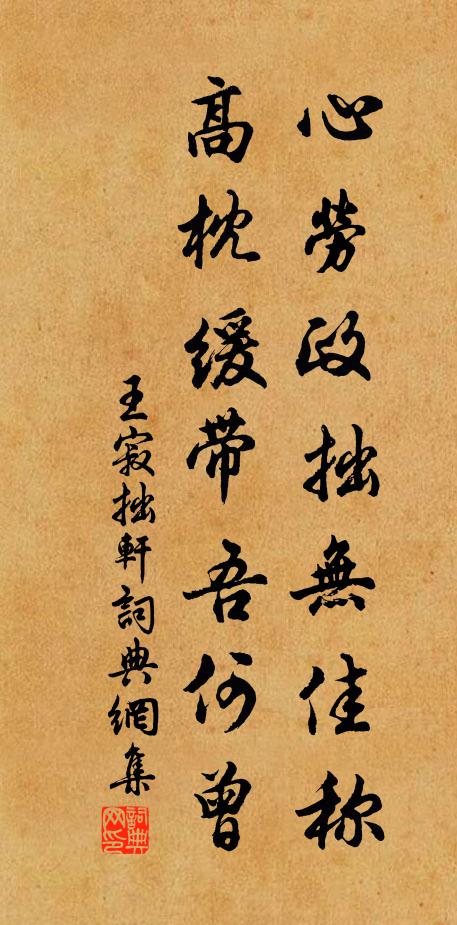 心勞政拙無佳称
高枕緩帶吾何曾
王寂拙軒詞典網集
詞典网印